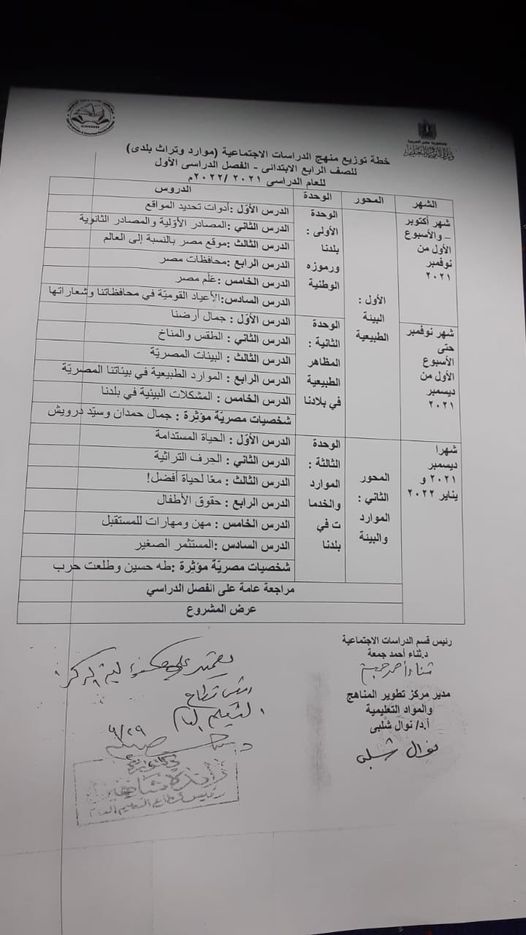 خطة توزيع منهج الدراسات الاجتماعية (موارد وتراث بلدى)
للصف الرابع الابتدائى - الفصل الدراسى الأول
للعام الدراسي ٢٠٢١ /٢٠٢٢م
الشهر المحور الوحدة الدروس
شهر أكتوبر
– والأسبوع
الأول من
نوفمبر
٢٠٢١
الأول :
البيئة
الطبيعية
الوحدة
الأولى :
بلدنا
ورموزه
الوطنية
الدرس الأوّل :أدوات تحديد المواقع
الدرس الثاني :المصادر الأوّلية والمصادر الثانوية
الدرس الثالث :موقع مصر بالنسبة إلى العالم
الدرس الرابع :محافظات مصر
الدرس الخامس :علم مصر
الدرس السادس:الأعياد القوميّة في محافظاتنا وشعاراتها
شهر نوفمبر
حتى
الأسبوع
الأول من
ديسمبر
٢٠٢١
الوحدة
الثانية :
المظاهر
الطبيعية
في بلادنا
الدرس الأوّل : جمال أرضنا
الدرس الثاني : الطقس والمناخ
الدرس الثالث : البيئات المصريّة
الدرس الرابع : الموارد الطبيعية في بيئاتنا المصريّة
الدرس الخامس : المشكلات البيئية في بلدنا
شخصيات مصريّة مؤثرة : جمال حمدان وسيّد درويش
شهرا
ديسمبر
٢٠٢١ و
يناير ٢٠٢٢
المحور
الثاني :
الموارد
والبيئة
الوحدة
الثالثة :
الموارد
والخدما
ت في
بلدنا
الدرس الأوّل : الحياة المستدامة
الدرس الثاني : الحرف التراثية
الدرس الثالث : معًا لحياة أفضل!
الدرس الرابع : حقوق الأطفال
الدرس الخامس : مهن ومهارات للمستقبل
الدرس السادس :المستثمر الصغير
شخصيات مصريّة مؤثرة :طه حسين وطلعت حرب
مراجعة عامة على الفصل الدراسي
عرض المشروع
رئيس قسم الدراسات الاجتماعية
د.ثناء أحمد جمعة
مدير مركز تطوير المناهج
والمواد التعليمية
أ.د/ نوال شلبى
نوال شلبى
رئيس قطاع
التعليم العام
٩/٢٩